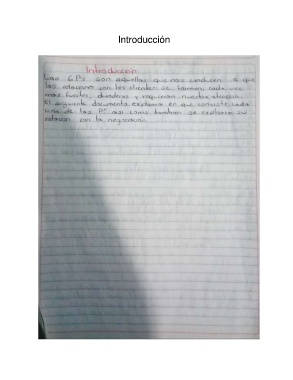 Introducción
Introducción
Las 6 Ps son aquellas que nos conducen a que
las relaciones con los clientes se tornen cada vez
mas fuertes, duraderas y requieran nuestra atención.
el siguiente documento explicara en que consiste cada
una de las P' asi como tambien se explicara su
relación con la negociación.